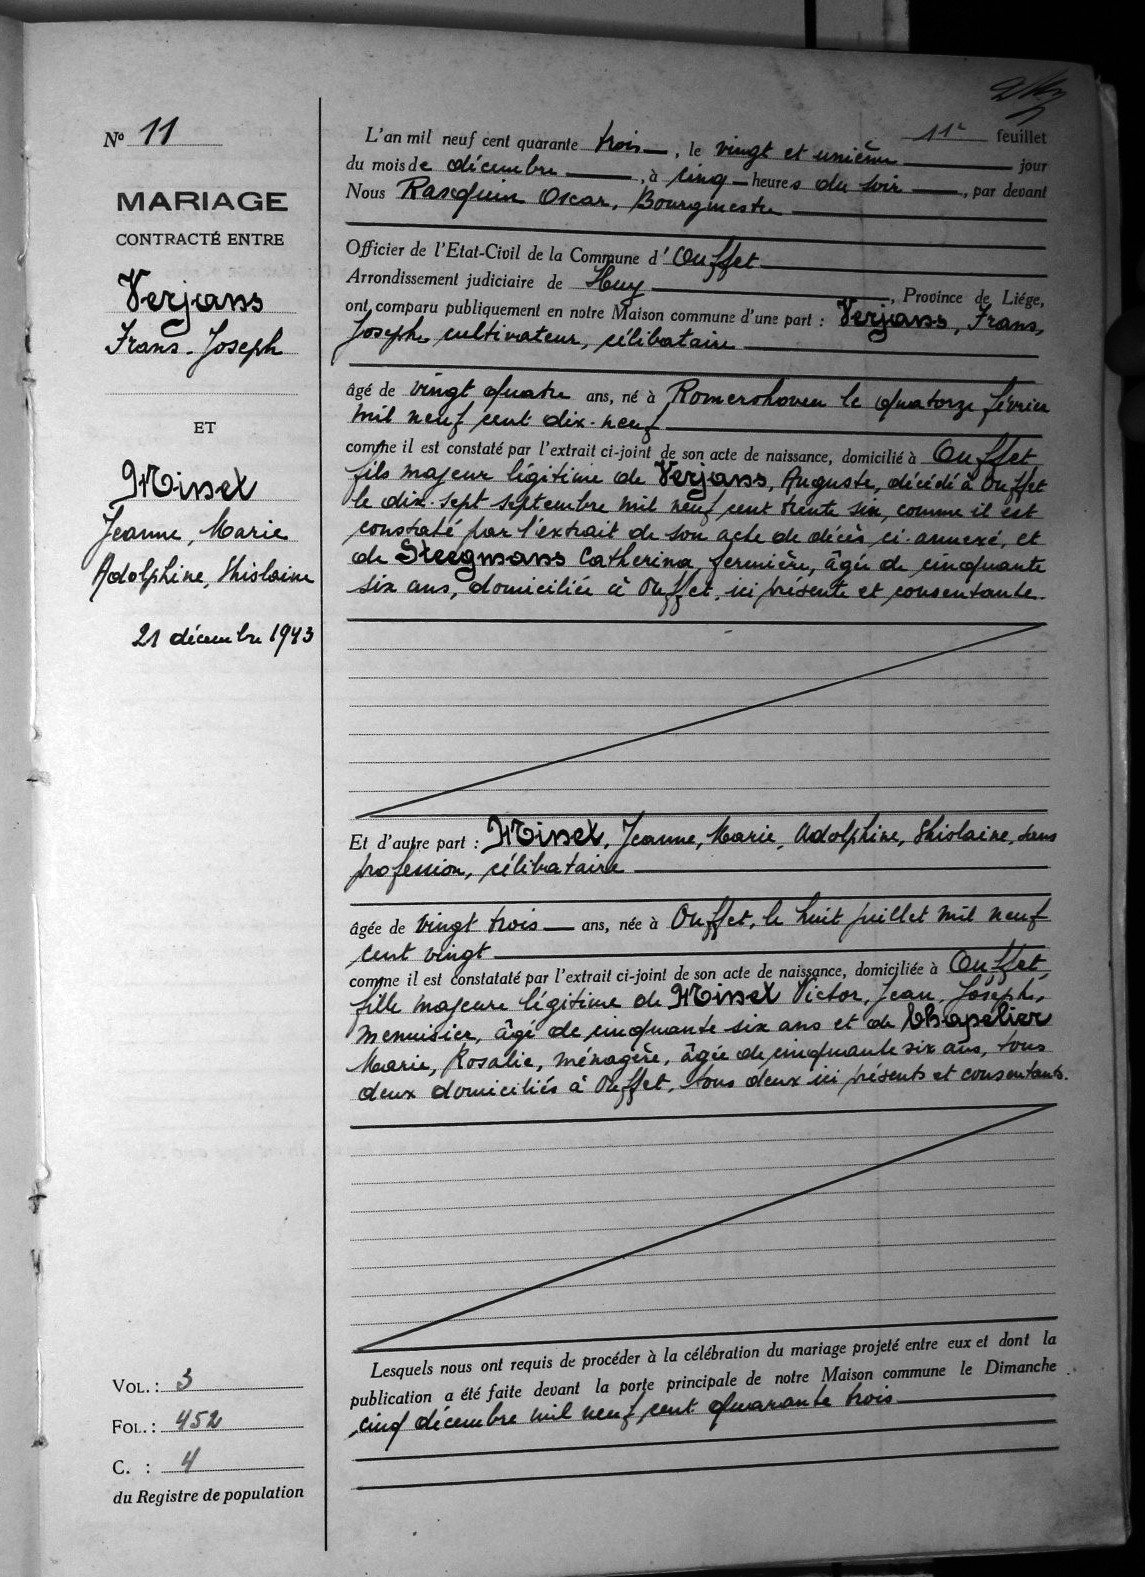 11e feuillet
N° 11
MARIAGE
CONTRACTÉ ENTRE
Verjans
Frans-Joseph
ET
Missel
Jeanne, Marie
Adolphine, Ghislaine
21 décembre 1943
VOL. : 3
FOL. : 452
C. : 4
du Registre de population
L'an mil neuf cent quarante trois, le vingt et unième jour
du mois de décembre, à cinq heures du soir, par devant
Nous Rasquin Oscar, Bourgmestre
Officier de l'Etat-Civil de la Commune d'Ouffet
Arrondissement judiciaire de Huy, Province de Liége,
ont comparu publiquement en notre Maison commune d'une part : Verjans, Frans,
Joseph, cultivateur, célibataire
âgé de vingt quatre ans, né à Romershoven le quatorze février
mil neuf cent dix-neuf
comme il est constaté par l'extrait ci-joint de son acte de naissance, domicilié à Ouffet
fils majeur légitime de Verjans, Auguste, décédé à Ouffet
le dix-sept septembre mil neuf cent trente six, comme il est
constaté par l'extrait de son acte de décès ci-annexé, et
de Steegmans Catherina, fermière, âgée de cinquante
six ans, domiciliée à Ouffet, ici présente et consentante.
Et d'autre part : Missel, Jeanne, Marie, Adolphine, Ghislaine, sans
profession, célibataire
âgée de vingt trois ans, née à Ouffet, le huit juillet mil neuf
cent vingt
comme il est constataté par l'extrait ci-joint de son acte de naissance, domiciliée à Ouffet,
fille majeure légitime de Missel Victor, Jean, Joseph,
menuisier, âgé de cinquante six ans et de Chapelier
Marie, Rosalie, ménagère, âgée de cinquante six ans, tous
deux domiciliés à Ouffet, tous deux ici présents et consentants.
Lesquels nous ont requis de procéder à la célébration du mariage projeté entre eux et dont la
publication a été faite devant la porte principale de notre Maison commune le Dimanche
cinq décembre mil neuf cent quarante trois